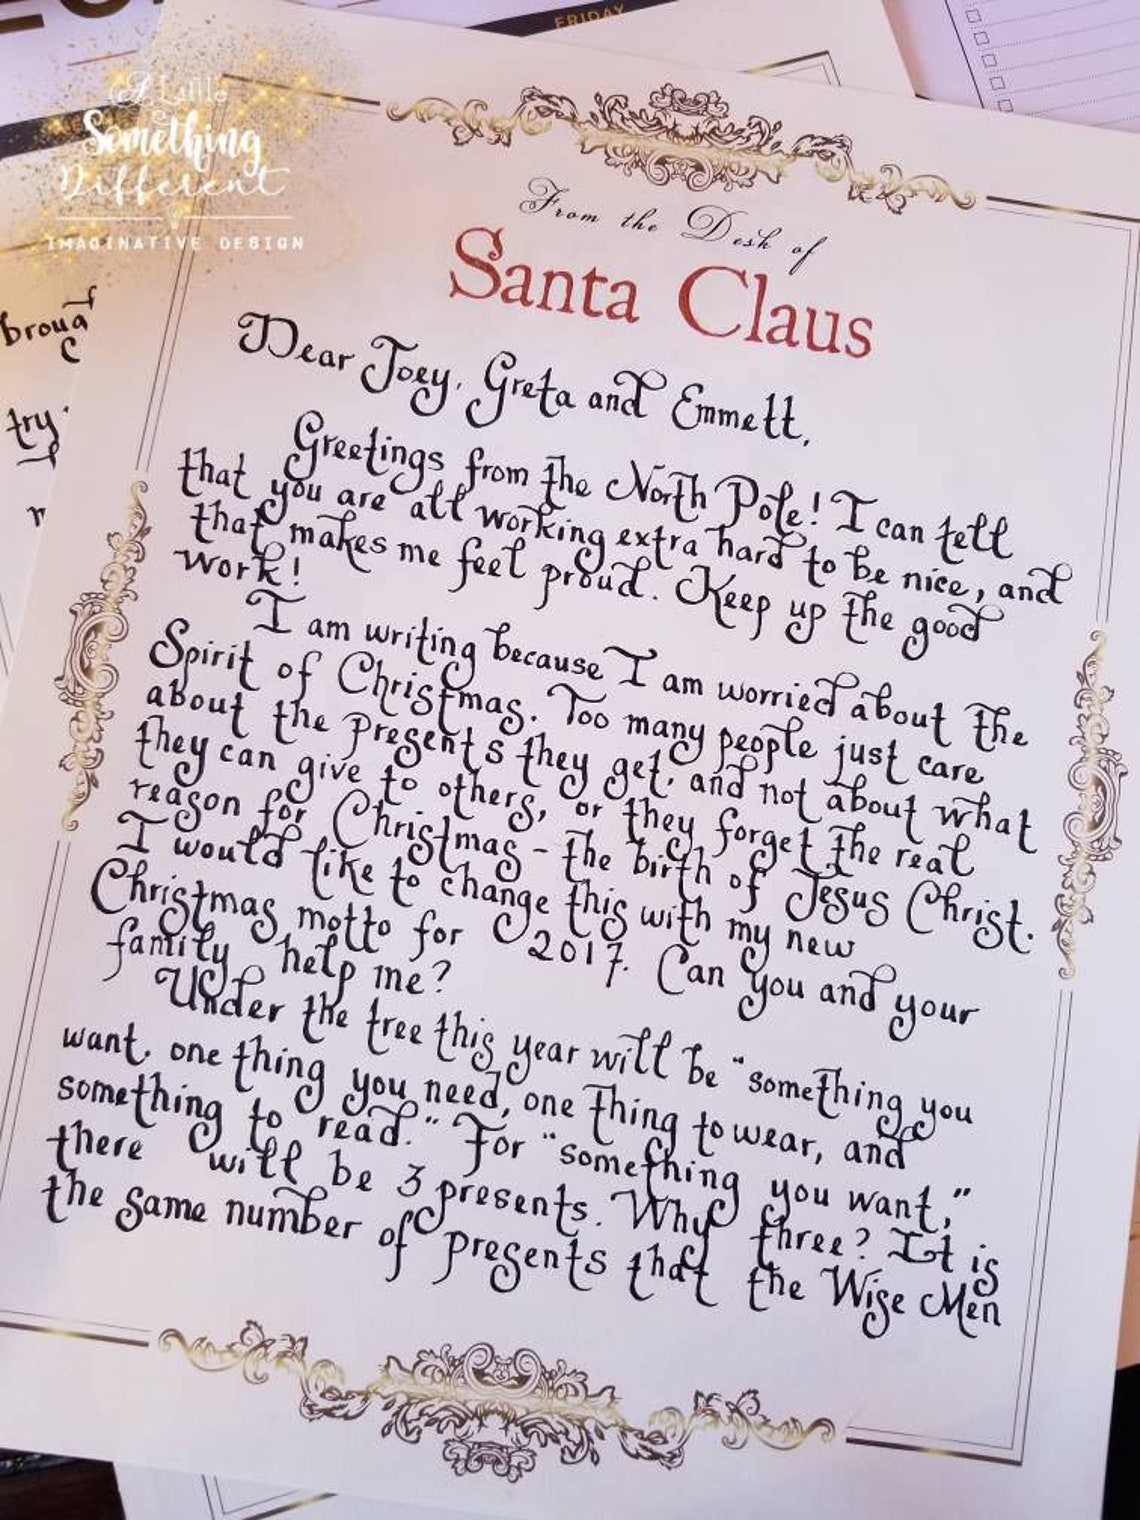 FRIDAY
A Little
Something
Different
IMAGINATIVE DESIGN
From the Desk of
Santa Claus
Dear Joey, Greta and Emmett,
Greetings from the North Pole! I can tell
that you are all working extra hard to be nice, and
that makes me feel proud. Keep up the good
work!
I am writing because I am worried about the
Spirit of Christmas. Too many people just care
about the presents they get, and not about what
they can give to others, or they forget the real
reason for Christmas - the birth of Jesus Christ.
I would like to change this with my new
Christmas motto for 2017. Can you and your
family help me?
Under the tree this year will be "something you
want, one thing you need, one thing to wear, and
something to read." For "something you want,"
there will be 3 presents. Why three? It is
the same number of presents that the Wise Men
try